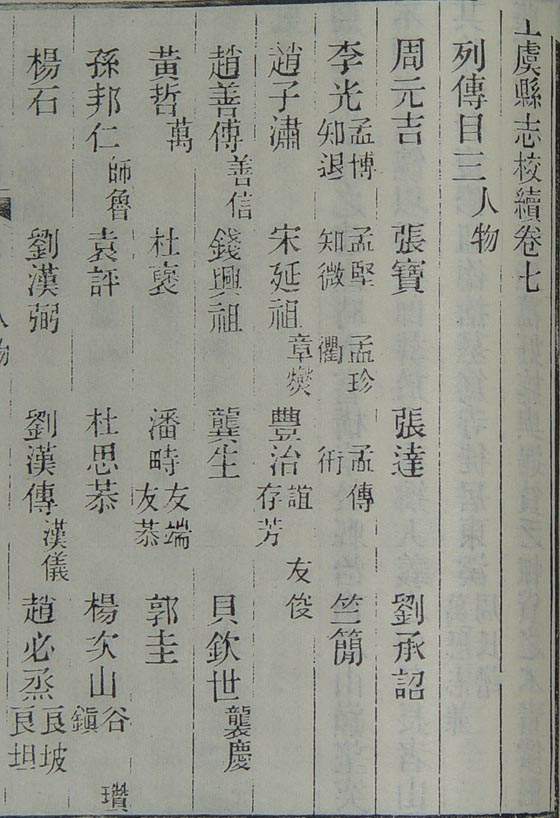 上虞縣志校續卷七
列傳目三 人物
周元吉 張寶 張達 劉承詔
李光 孟博 知退 孟堅 知微 孟珍 衢 孟傳 術 竺簡
趙子潚 宋延祖 章燮 豐治 誼 存芳 友俊
趙善傅 善信 錢興祖 龔生 貝欽世 襲慶
黃哲 萬 杜襃 潘畤 友端 友恭 郭圭
孫邦仁 師魯 袁評 杜思恭 楊次山 谷 鎮 瓚
楊石 劉漢弼 劉漢傳 漢儀 趙必烝 良坡 良坦
人物